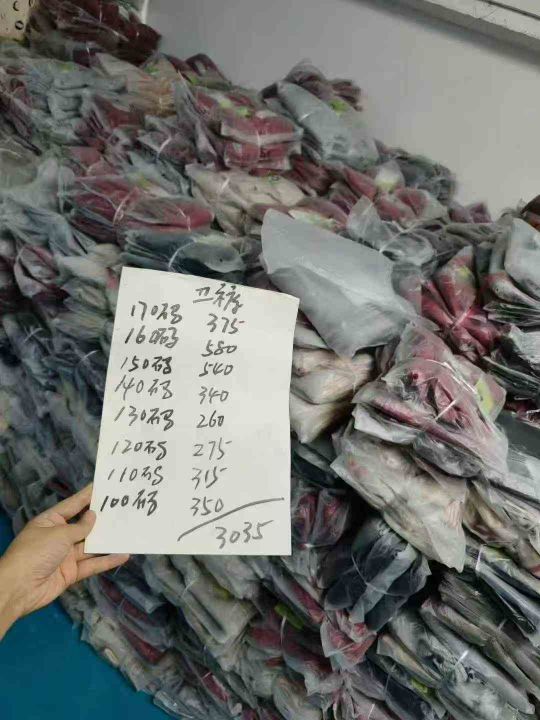 170码 375
160码 580
150码 540
140码 340
130码 260
120码 275
110码 315
100码 350
3035